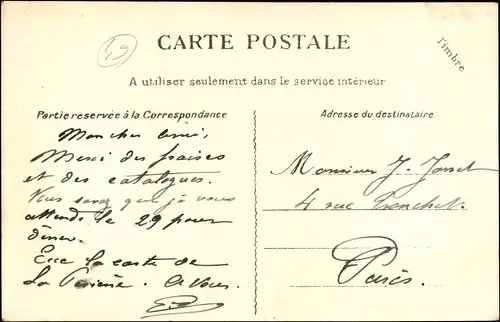 49
CARTE POSTALE
Timbre
A utiliser seulement dans le service intérieur
Partie reservée à la Correspondance
Adresse du destinataire
Mon cher ami,
Merci des fraises
et des catalogues.
Vous savez que je vous
attends le 29 pour
dîner.
la carte de
La A vous.
Monsieur J.
4 rue Tronchet.
Paris.